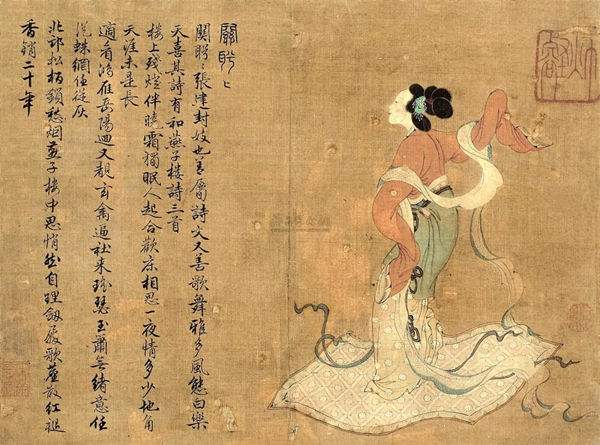 關盻〻
關盻〻張建封妓也善屬詩文又善歌舞雅多風態白樂
天喜其詩有和燕子樓詩三首
樓上殘燈伴曉霜獨眠人起合歡床相思一夜情多少地角
天涯未是長
適看鴻雁岳陽迴又覩玄禽逼社來瑤瑟玉簫無緒意任
從蛛網任從灰
北邙松柏鎖愁烟燕子樓中思悄然自理劔履歌塵散紅褪
香銷二十年